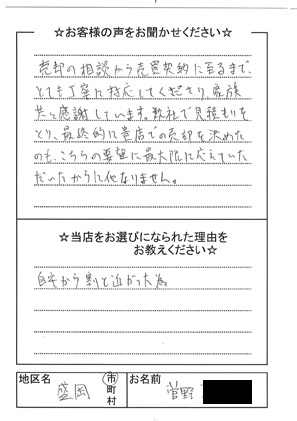 ☆お客様の声をお聞かせください☆
売却の相談から売買契約に至るまで、
とても丁寧に対応してくださり、家族
共々感謝しています。数社で見積もりを
とり、最終的に貴店での売却を決めた
のも、こちらの要望に最大限に応えていた
だいたからに他なりません。
☆当店をお選びになられた理由を
お教えください☆
自宅から割と近かった為
地区名 盛岡 市町村 お名前 菅野